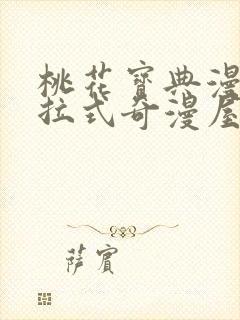 桃花寶典漫
拉式奇漫屋
萨賓